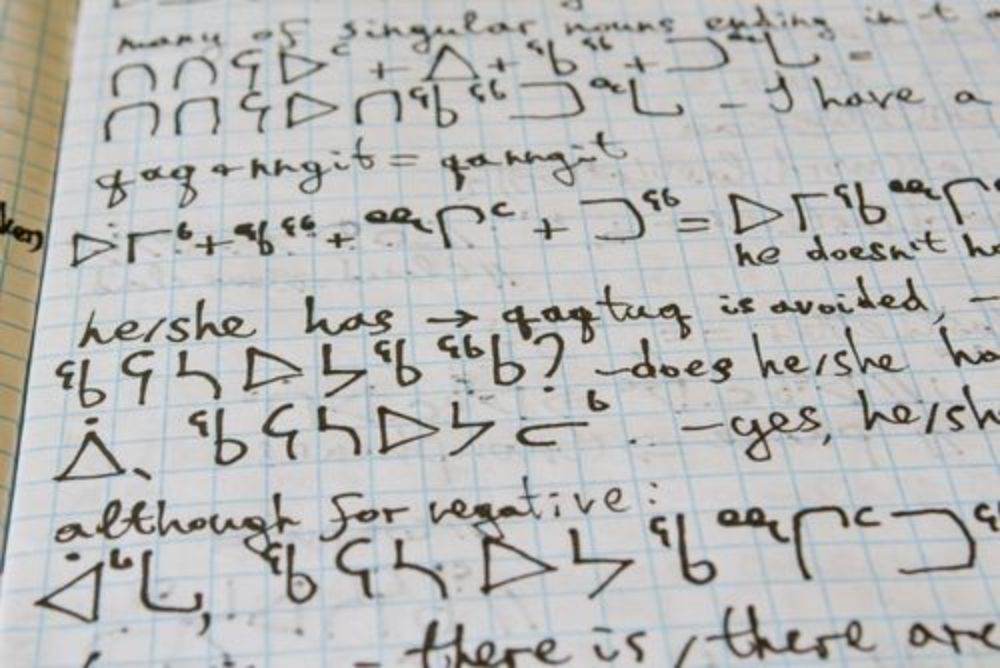 many of singular nouns ending in t a
ᑎᑎᕋᐅᑦ + ᐃ + ᖃᖅ + ᑐᙵ =
ᑎᑎᕋᐅᑎᖃᖅᑐᙵ - I have a
qaq + nngit = qanngit
ᐅᒥᒃ + ᖃᖅ + ᙱᑦ + ᑐᖅ = ᐅᒥᖃᙱ
he doesn't h
he/she has → qaqtuq is avoided, -
ᖃᕋᓴᐅᔭᖃᖅᑲ? - does he/she ha
ᐄ, ᖃᕋᓴᐅᔭᓕᒃ. - yes, he/sh
although for negative:
ᐋᒡᒐ, ᖃᕋᓴᐅᔭᖃᙱᑦᑐᖅ
- there is / there are